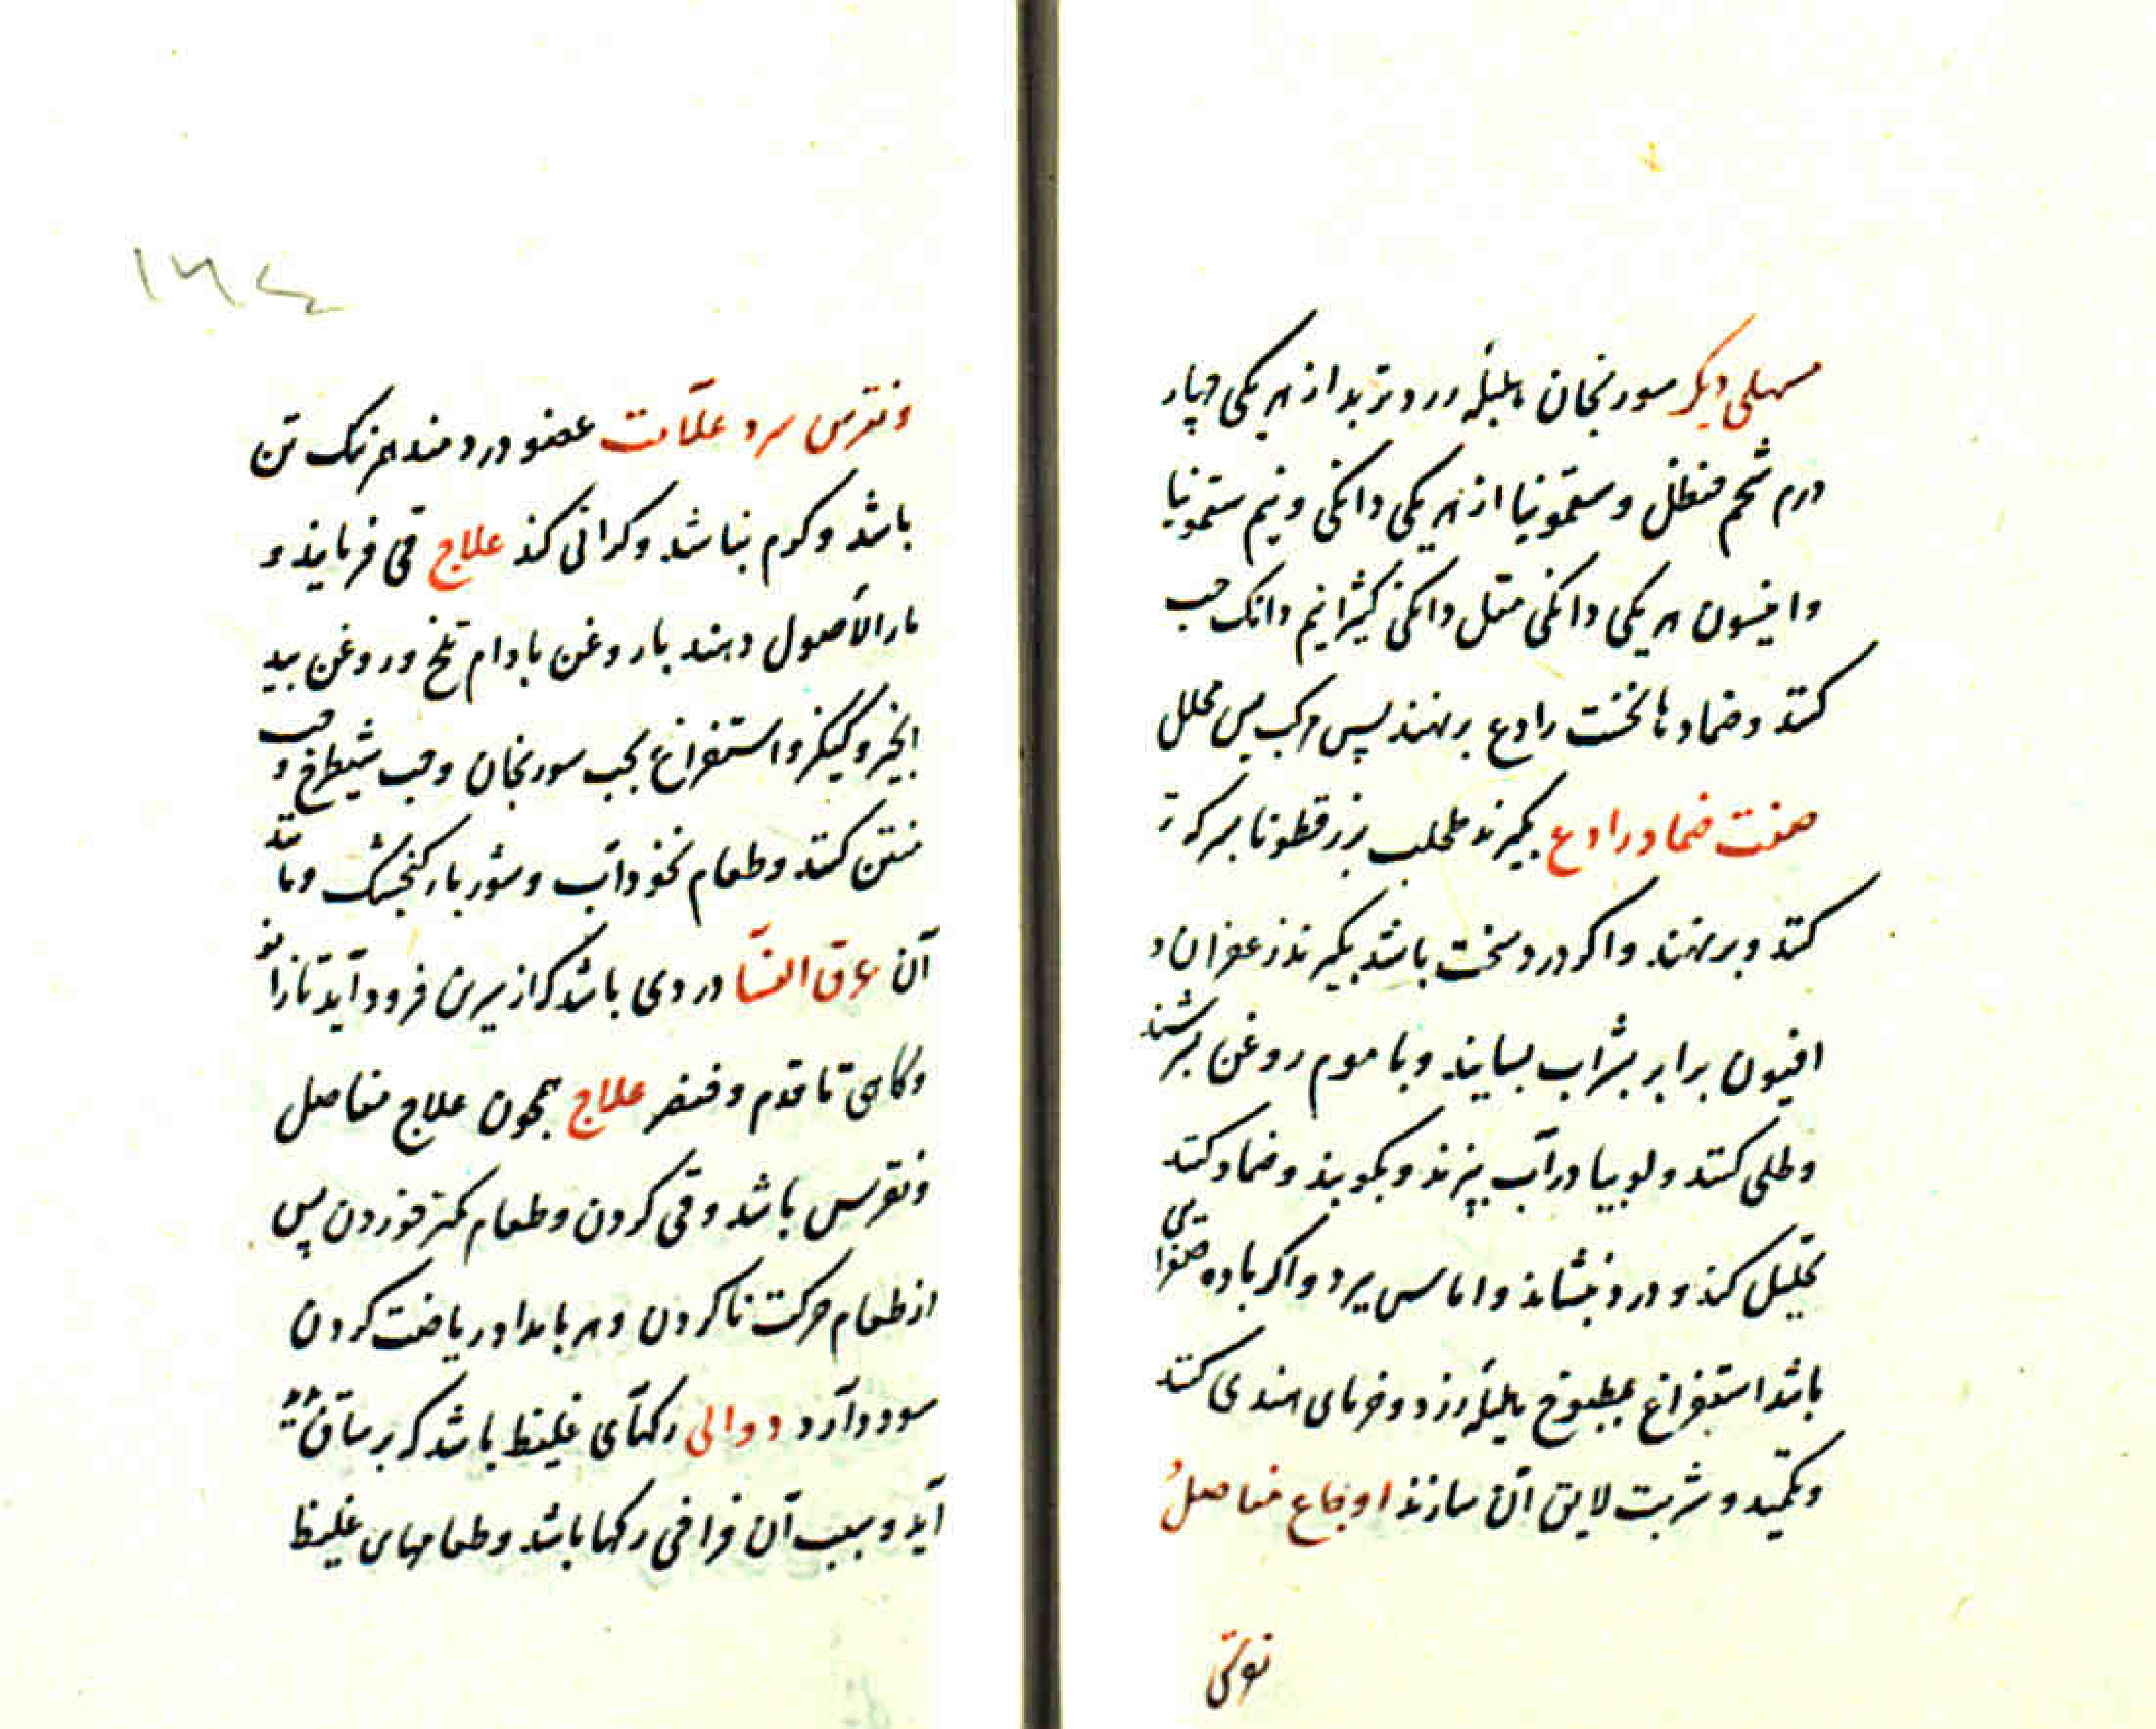 مسهلی دیکر سورنجان هلیلهٔ زرد تربد از هر یکی چهار
درم شحم حنظل و سقمونیا از هر یکی دانکی و نیم سقمونیا
وانیسون هر یکی دانکی مقل دانکی کثیرا نیم دانک حب
کنند وضمادها نخست رادع برنهند پس مرکب پس محلل
صفت ضماد رادع بکیرند طحلب بزرقطونا بسرکه تر
کنند و برنهند واکر درد سخت باشد بکیرند زعفران و
افیون برابر بشراب بسایند و با موم روغن بسرشند
وطلی کنند و لوبیا در آب بپزند و بکوبند و ضماد کنند
تحلیل کند و درد بنشاند و اماس ببرد واکر ماده صفرایی
باشد استفراغ بمطبوخ هلیلهٔ زرد و خرمای هندی کنند
وتکمید و شربت لایق آن سازند اوجاع مفاصل
١٦٤
ونقرس سرد علامت عضو دردمند همرنک تن
باشد وکرم نباشد وکرانی کند علاج قی فرمایند و
ماء الاصول دهند با روغن بادام تلخ و روغن بید
انجیر و کیکنز واستفراغ بحب سورنجان وحب شیطرخ و حب
منتن کنند وطعام نخوداب وشوربا کنجشک ومانند
آن عرق النسا دردی باشد که از سرین فرود آید تا زانو
وکاهی تا قدم وخنصر علاج همچون علاج مفاصل
ونقرس باشد وقی کردن وطعام کمتر خوردن پس
از طعام حرکت ناکردن وهر بامداد ریاضت کردن
سود دارد دوالی رکهای غلیظ باشد که بر ساق
آید وسبب آن فراخی رکها باشد وطعامهای غلیظ